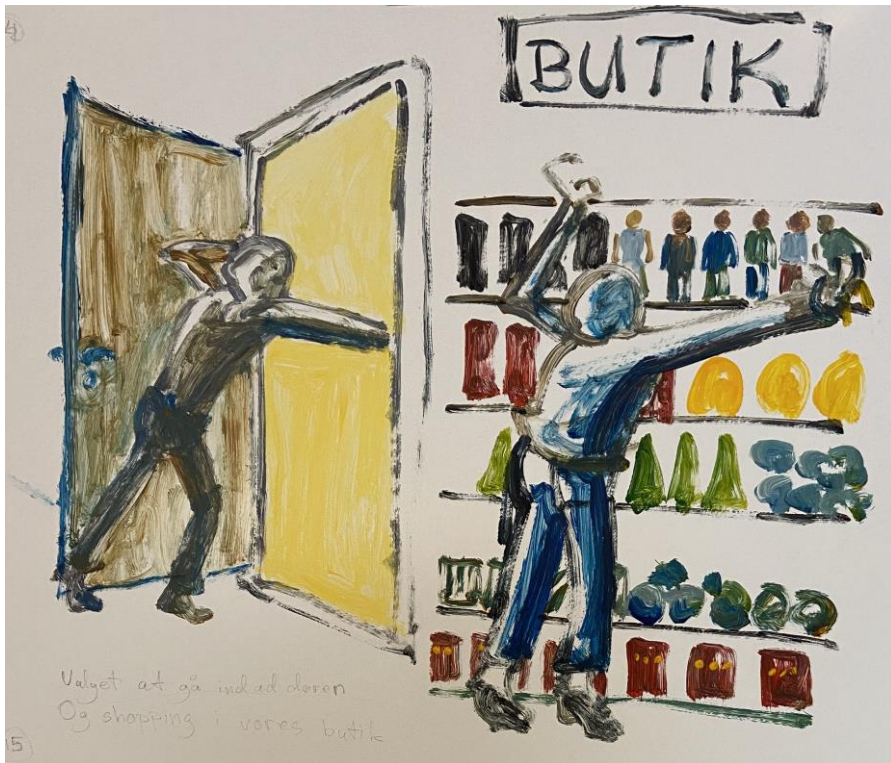 BUTIK
Valget at gå ind ad døren
Og shopping i vores butik
15